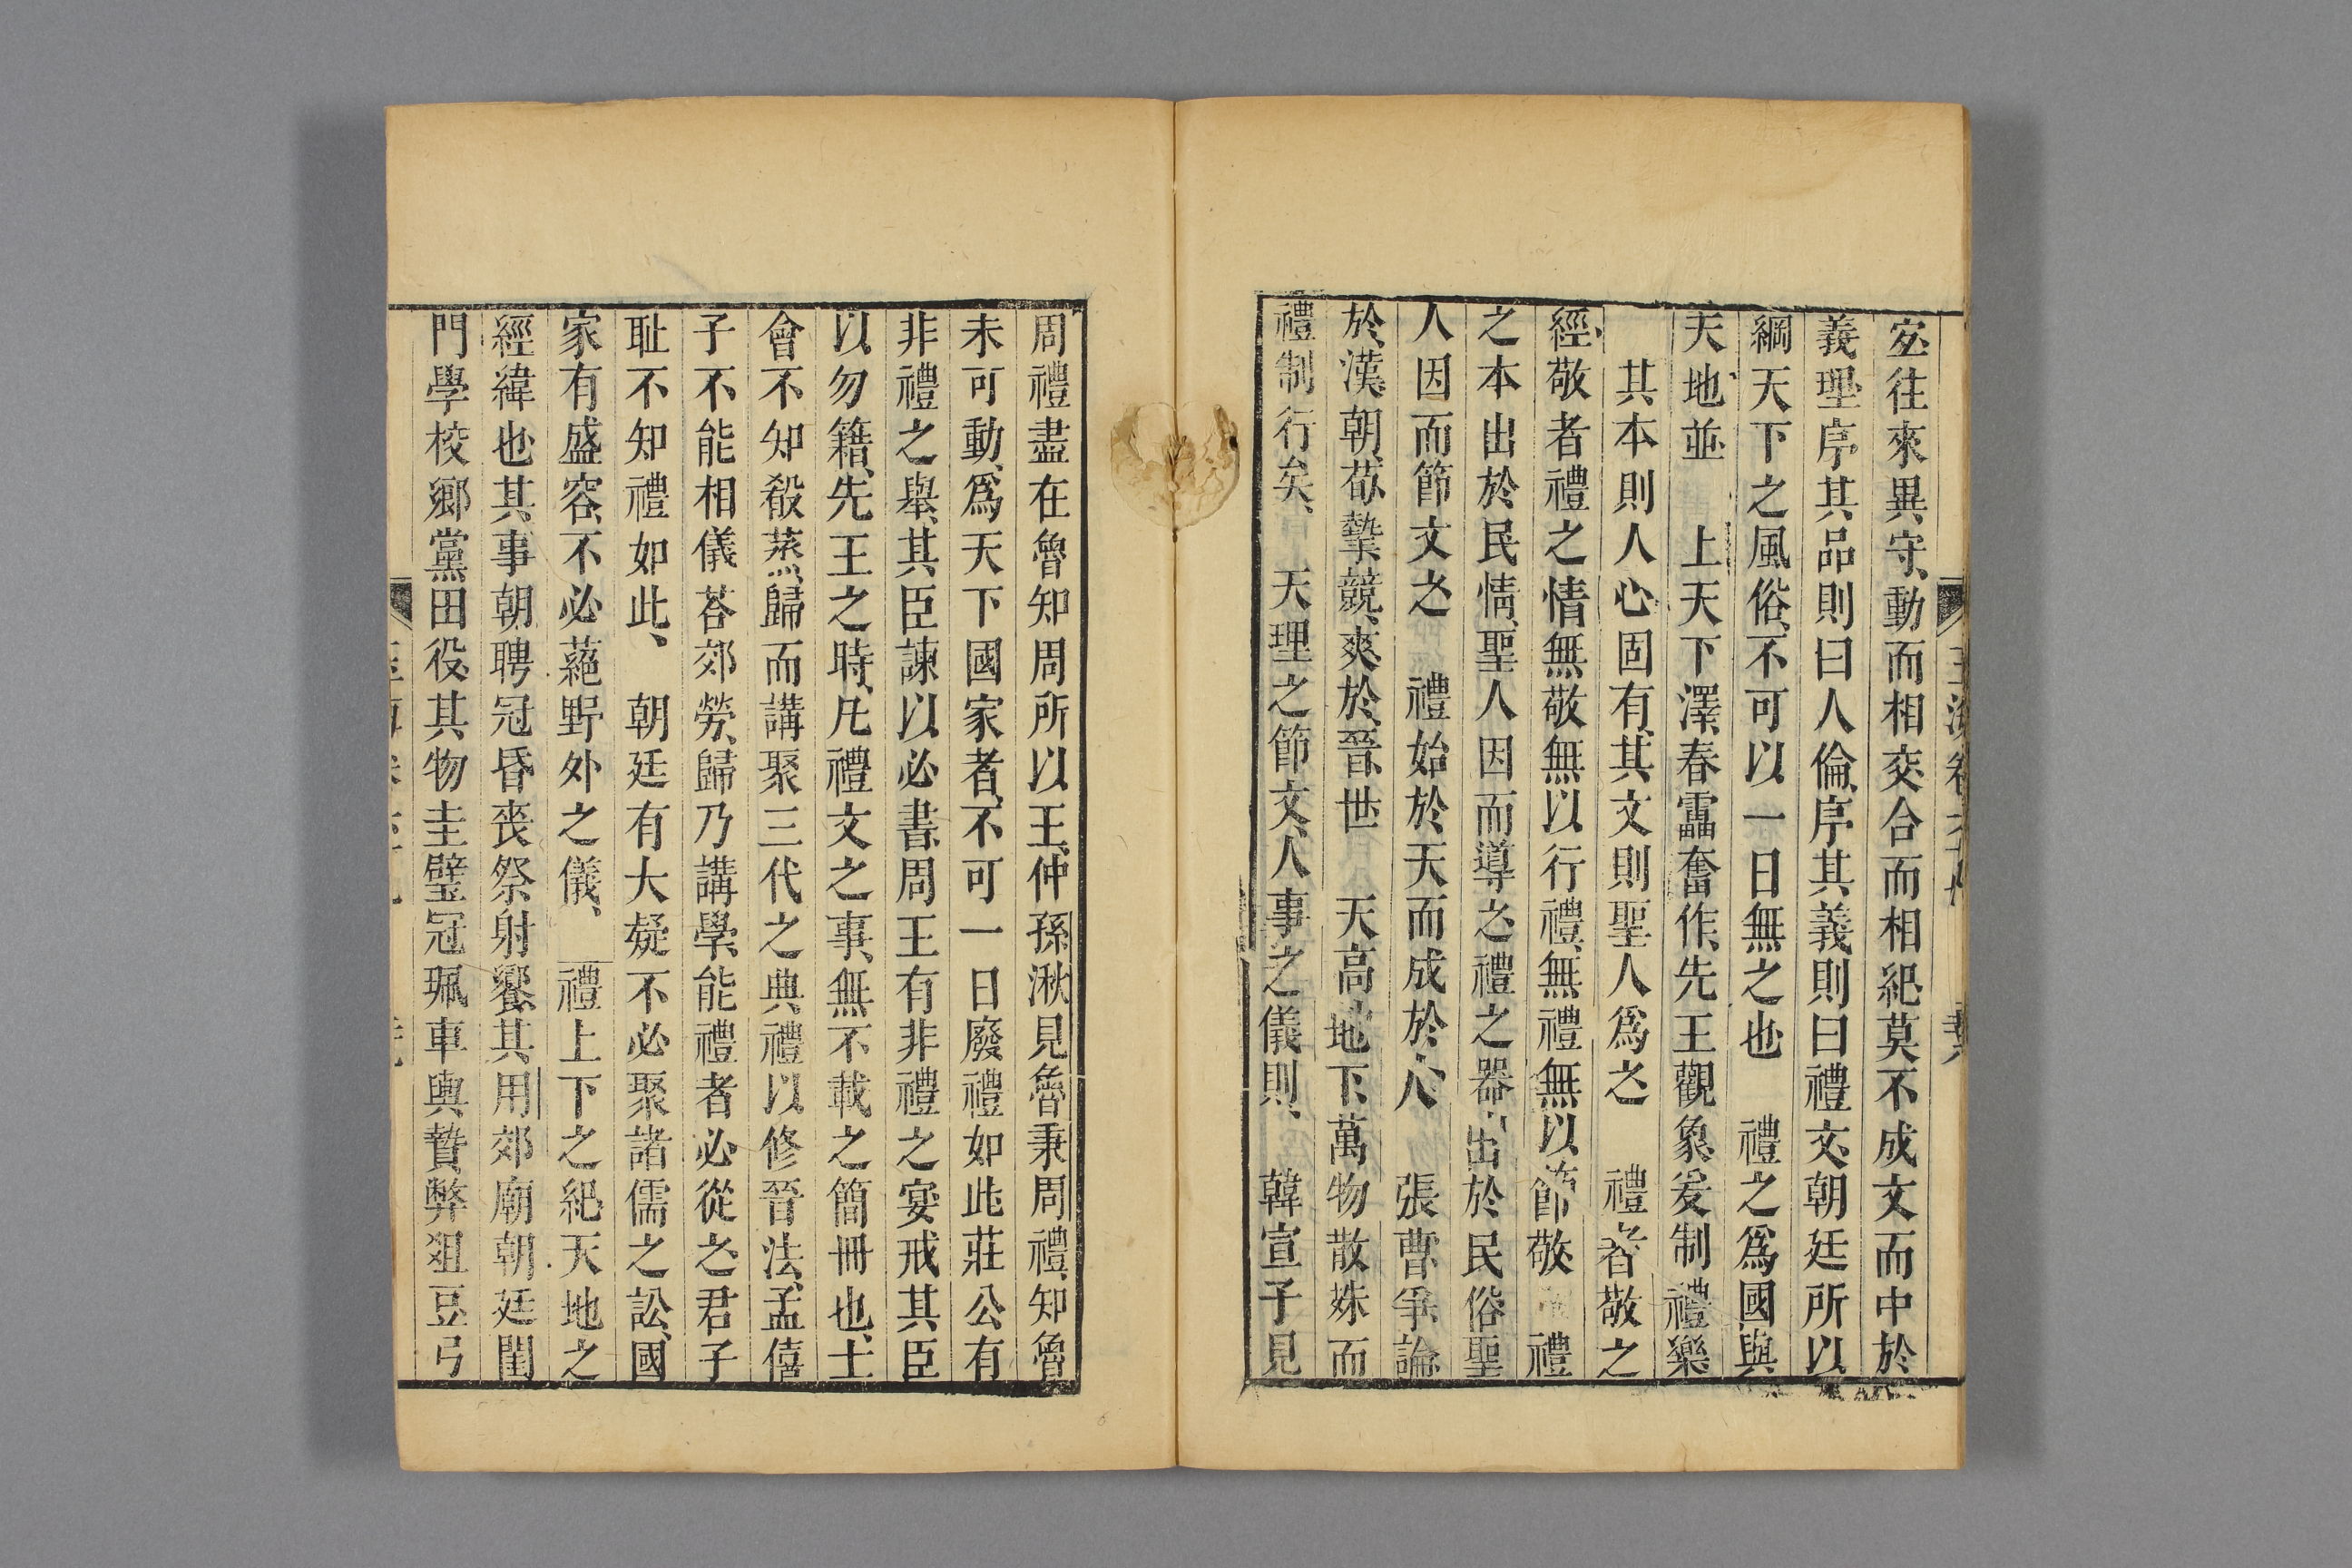 宐往來異守動而相交合而相紀莫不成文而中於
義理序其品則曰人倫序其義則曰禮文朝廷所以
綱天下之風俗不可以一日無之也　禮之爲國與
天地並　上天下澤春靁奮作先王觀象爰制禮樂
其本則人心固有其文則聖人爲之　禮者敬之
經敬者禮之情無敬無以行禮無禮無以節敬　禮
之本出於民情聖人因而導之禮之器出於民俗聖
人因而節文之　禮始於天而成於人　張曹爭論
於漢朝荀摯競爽於晉世　天高地下萬物散殊而
禮制行矣　天理之節文人事之儀則　韓宣子見
周禮盡在魯知周所以王仲孫湫見魯秉周禮知魯
未可動爲天下國家者不可一日廢禮如此莊公有
非禮之舉其臣諫以必書周王有非禮之宴戒其臣
以勿籍先王之時凡禮文之事無不載之簡冊也士
會不知殽蒸歸而講聚三代之典禮以修晉法孟僖
子不能相儀荅郊勞歸乃講學能禮者必從之君子
耻不知禮如此　朝廷有大疑不必聚諸儒之訟國
家有盛容不必蕝野外之儀　禮上下之紀天地之
經緯也其事朝聘冠昏喪祭射饗其用郊廟朝廷閨
門學校鄉黨田役其物圭璧冠珮車輿贄弊俎豆弓